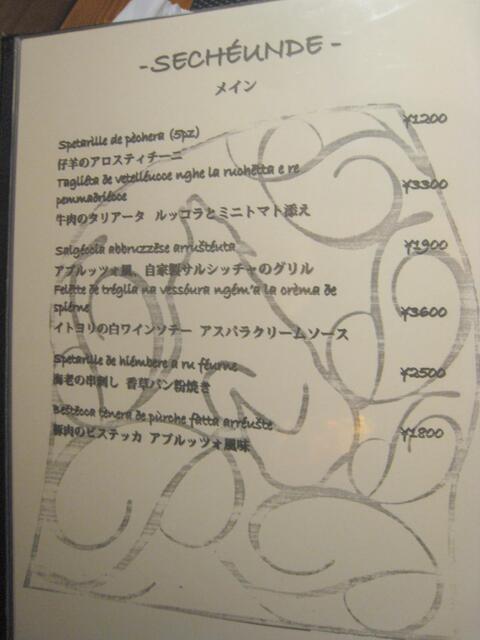 -SECHÉUNDE-
メイン
Spetarille de pèchera (5pz) ¥1200
仔羊のアロスティチーニ
Tagliéta de vetelléucce nghe la ruchëtta e re
pemmadriécce ¥3300
牛肉のタリアータ ルッコラとミニトマト添え
Salgéccia abbruzzëse arrustéuta ¥1900
アブルッツォ風、自家製サルシッチャーのグリル
Felëtte de tréglia na vessóura ngém'a la crèma de
spiérne ¥3600
イトヨリの白ワインソテー アスパラクリームソース
Spetarille de hiémbere a ru féurne ¥2500
海老の串刺し 香草パン粉焼き
Bestécca tènera de pùrche fatta arréuste ¥1800
豚肉のビステッカ アブルッツォ風味